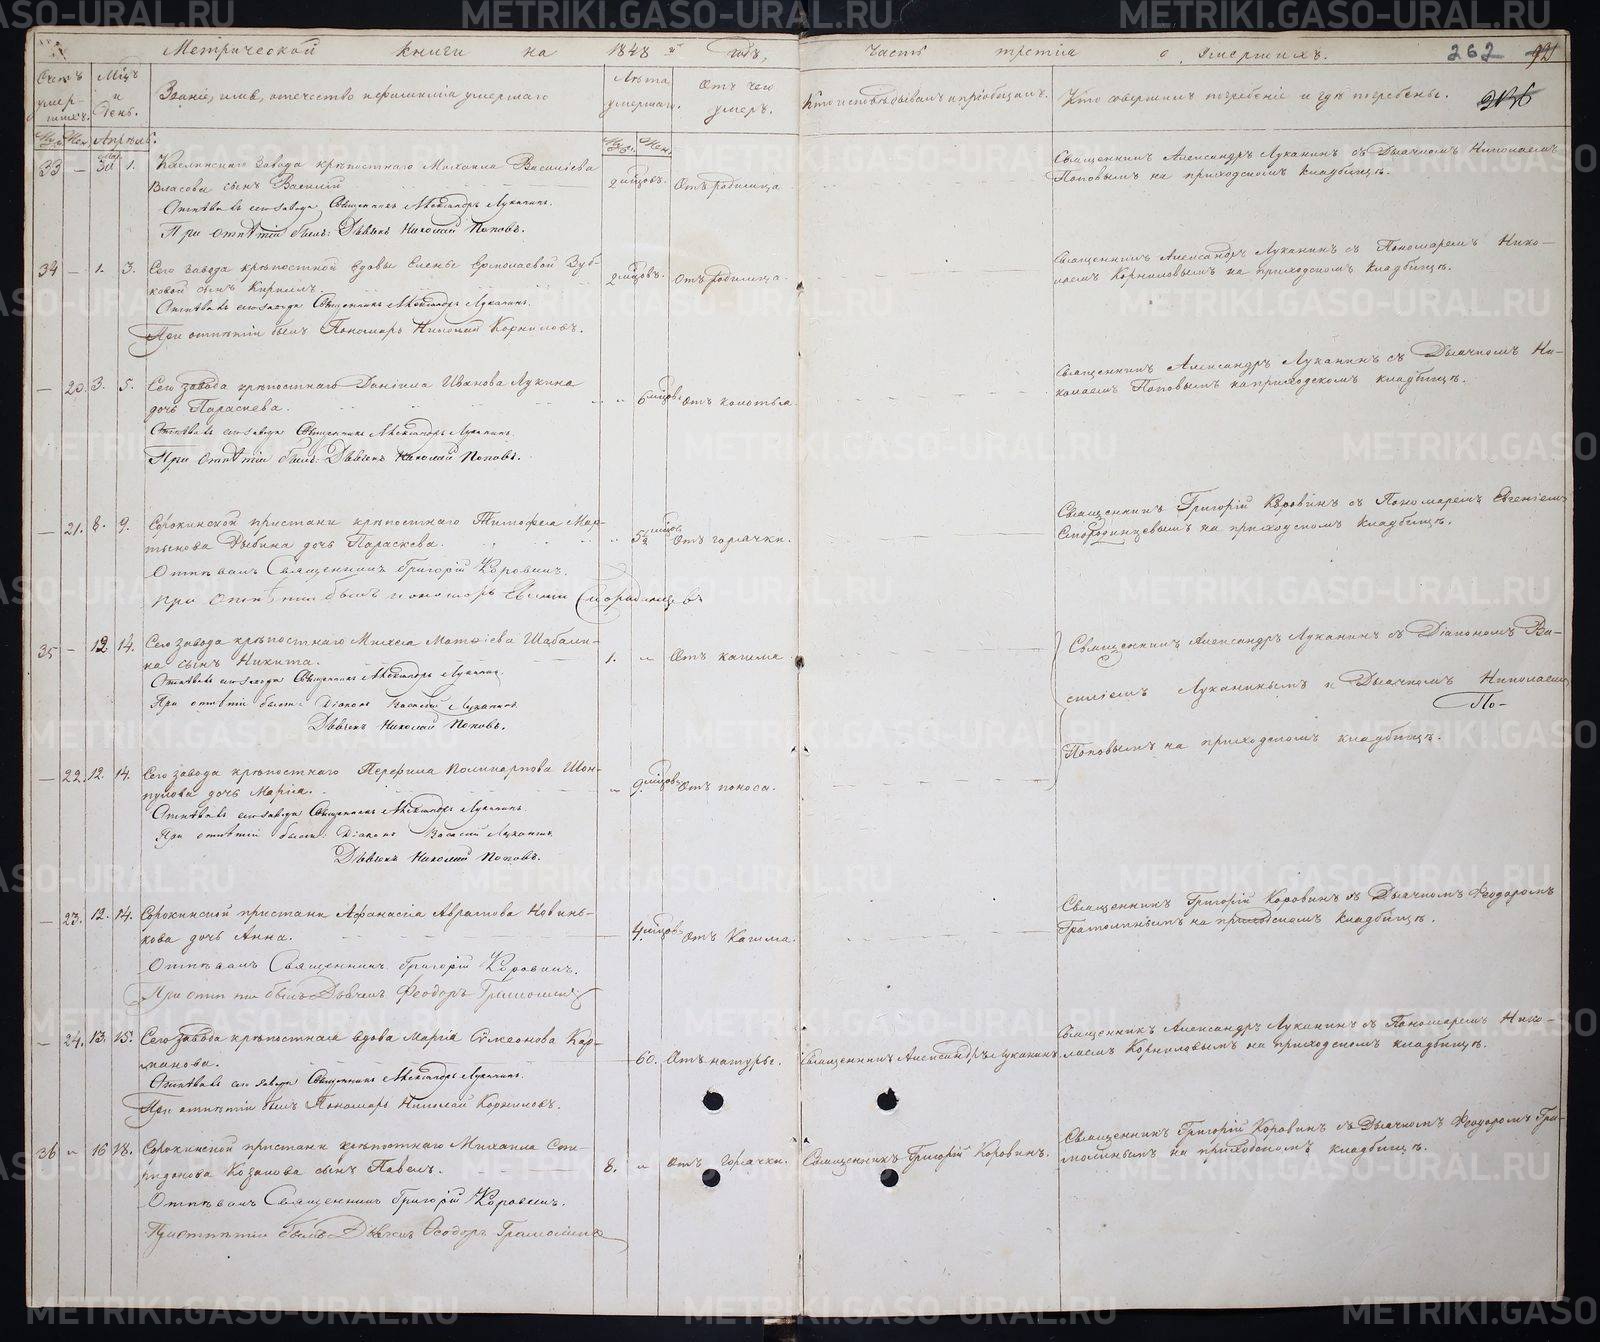 Метрической книги на 1848й годъ, часть третiя о умершихъ. 262
Счетъ умершихъ. Мѣсяцъ и День. Званiе, имя, отечество и фамилiя умершаго Лѣта умершаго. Отъ чего умеръ. Кто исповѣдывалъ и прiобщалъ. Кто совершилъ погребенiе и гдѣ погребены.
Муж. Жен. Апрѣль. Муж. Жен.
33 — 30 1. Каслинскаго завода крѣпостнаго Михаила Васильева
Власова сынъ Василiй 2 мѣцовъ. Отъ родимца
Священникъ Александръ Луканинъ съ Дьячкомъ Николаемъ
Поповымъ на приходскомъ кладбищѣ.
Отпѣвалъ сего завода Священникъ Александръ Луканинъ.
При отпѣтiи былъ: Дьячекъ Николай Поповъ.
34 — 1. 3. Сего завода крѣпостной вдовы Елены Ермолаевой Зуб-
ковой сынъ Кириллъ 2 мѣцовъ. Отъ родимца.
Священникъ Александръ Луканинъ съ Пономаремъ Нико-
лаемъ Корниловымъ на приходскомъ кладбищѣ.
Отпѣвалъ сего завода Священникъ Александръ Луканинъ.
При отпѣтiи былъ Пономарь Николай Корниловъ.
— 20. 3. 5. Сего завода крѣпостнаго Данiила Иванова Лукина
дочь Параскева. 6 мѣцовъ Отъ колотья.
Священникъ Александръ Луканинъ съ Дьячкомъ Ни-
колаемъ Поповымъ на приходскомъ кладбищѣ.
Отпѣвалъ сего завода Священникъ Александръ Луканинъ.
При отпѣтiи былъ: Дьячекъ Николай Поповъ.
— 21. 8. 9. Сорокинской пристани крѣпостнаго Тимофея Мар-
тынова Рыбина дочь Параскева. 5½ мѣцовъ Отъ горячки.
Священникъ Григорiй Коровинъ съ Пономаремъ Евгенiемъ
Смородинцевымъ на приходскомъ кладбищѣ.
Отпѣвалъ Священникъ Григорiй Коровинъ.
При отпѣтiи былъ пономарь Евгенiй Смородинцевъ
35 — 12 14. Сего завода крѣпостнаго Михея Матѳiева Шабали-
на сынъ Никита. 1. „ Отъ кашля
Священникъ Александръ Луканинъ съ Дiакономъ Ва-
силiемъ Луканинымъ и Дьячкомъ Николаемъ
По-
Поповымъ на приходскомъ кладбищѣ.
Отпѣвалъ сего завода Священникъ Александръ Луканинъ.
При отпѣтiи были: Дiаконъ Василiй Луканинъ
Дьячекъ Николай Поповъ.
— 22. 12. 14. Сего завода крѣпостнаго Перфила Поликарпова Шон-
пулова дочь Марiя. „ 9. мѣцовъ Отъ поноса.
Отпѣвалъ сего завода Священникъ Александръ Луканинъ
При отпѣтiи были: Дiаконъ Василiй Луканинъ
Дьячекъ Николай Поповъ.
— 23. 12. 14. Сорокинской пристани Афанасiя Аврамова Новинь-
кова дочь Анна. 4. мѣцовъ Отъ Кашля.
Священникъ Григорiй Коровинъ съ Дьячкомъ Ѳеодоромъ
Грамолинымъ на приходскомъ кладбищѣ.
Отпѣвалъ Священникъ Григорiй Коровинъ.
При отпѣтiи былъ Дьячекъ Феодоръ Грамолинъ
— 24. 13. 15. Сего завода крѣпостная вдова Марiя Сѵмеонова Кар-
манова. 60. Отъ натуры. Священникъ Александръ Луканинъ
Священникъ Александръ Луканинъ съ Пономаремъ Нико-
лаемъ Корниловымъ на приходскомъ кладбищѣ.
Отпѣвалъ сего завода Священникъ Александръ Луканинъ.
При отпѣтiи былъ Пономарь Николай Корниловъ.
36 „ 16 18. Сорокинской пристани крѣпостнаго Михаила Спи-
ридонова Козакова сынъ Павелъ. 8. „ Отъ горячки. Священникъ Григорiй Коровинъ.
Священникъ Григорiй Коровинъ съ Дьячкомъ Ѳеодоромъ Гра-
молинымъ на приходскомъ кладбищѣ.
Отпѣвалъ Священникъ Григорiй Коровинъ.
При отпѣтiи былъ Дьячекъ Ѳеодоръ Грамолинъ
METRIKI.GASO-URAL.RU